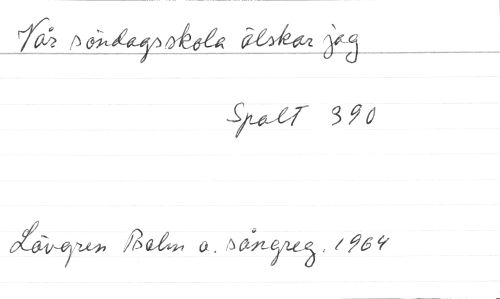 Vår söndagsskola älskar jag
Spalt 390
Lövgren Psalm o. sångreg. 1964